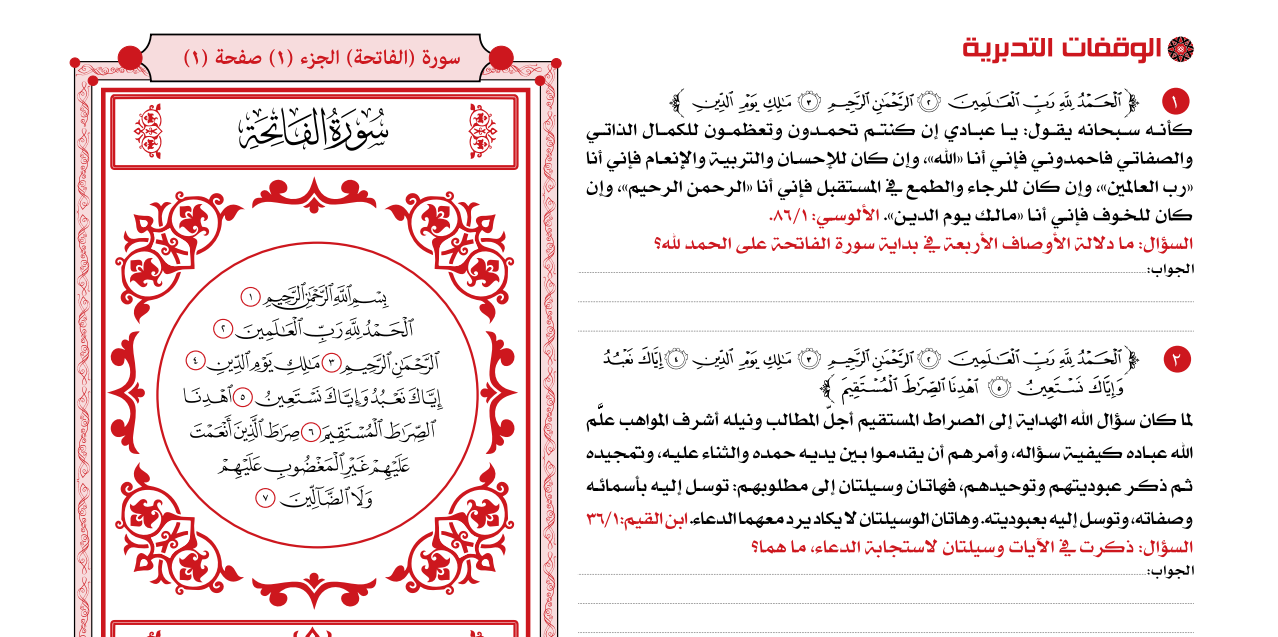 الوقفات التدبرية
١ ﴿ ٱلْحَمْدُ لِلَّهِ رَبِّ ٱلْعَٰلَمِينَ ٢ ٱلرَّحْمَٰنِ ٱلرَّحِيمِ ٣ مَٰلِكِ يَوْمِ ٱلدِّينِ ﴾
كأنه سبحانه يقول: يا عبادي إن كنتم تحمدون وتعظمون للكمال الذاتي
والصفاتي فاحمدوني فإني أنا «الله»، وإن كان للإحسان والتربية والإنعام فإني أنا
«رب العالمين»، وإن كان للرجاء والطمع في المستقبل فإني أنا «الرحمن الرحيم»، وإن
كان للخوف فإني أنا «مالك يوم الدين». الألوسي: ٨٦/١.
السؤال: ما دلالة الأوصاف الأربعة في بداية سورة الفاتحة على الحمد لله؟
الجواب:
٢ ﴿ ٱلْحَمْدُ لِلَّهِ رَبِّ ٱلْعَٰلَمِينَ ٢ ٱلرَّحْمَٰنِ ٱلرَّحِيمِ ٣ مَٰلِكِ يَوْمِ ٱلدِّينِ ٤ إِيَّاكَ نَعْبُدُ
وَإِيَّاكَ نَسْتَعِينُ ٥ ٱهْدِنَا ٱلصِّرَٰطَ ٱلْمُسْتَقِيمَ ﴾
لما كان سؤال الله الهداية إلى الصراط المستقيم أجلّ المطالب ونيله أشرف المواهب علَّم
الله عباده كيفية سؤاله، وأمرهم أن يقدموا بين يديه حمده والثناء عليه، وتمجيده
ثم ذكر عبوديتهم وتوحيدهم، فهاتان وسيلتان إلى مطلوبهم: توسل إليه بأسمائه
وصفاته، وتوسل إليه بعبوديته. وهاتان الوسيلتان لا يكاد يرد معهما الدعاء. ابن القيم: ٣٦/١
السؤال: ذكرت في الآيات وسيلتان لاستجابة الدعاء، ما هما؟
الجواب:
سورة (الفاتحة) الجزء (١) صفحة (١)
سُورَةُ الْفَاتِحَةِ
بِسْمِ ٱللَّهِ ٱلرَّحْمَٰنِ ٱلرَّحِيمِ ١
ٱلْحَمْدُ لِلَّهِ رَبِّ ٱلْعَٰلَمِينَ ٢
ٱلرَّحْمَٰنِ ٱلرَّحِيمِ ٣ مَٰلِكِ يَوْمِ ٱلدِّينِ ٤
إِيَّاكَ نَعْبُدُ وَإِيَّاكَ نَسْتَعِينُ ٥ ٱهْدِنَا
ٱلصِّرَٰطَ ٱلْمُسْتَقِيمَ ٦ صِرَٰطَ ٱلَّذِينَ أَنْعَمْتَ
عَلَيْهِمْ غَيْرِ ٱلْمَغْضُوبِ عَلَيْهِمْ
وَلَا ٱلضَّآلِّينَ ٧